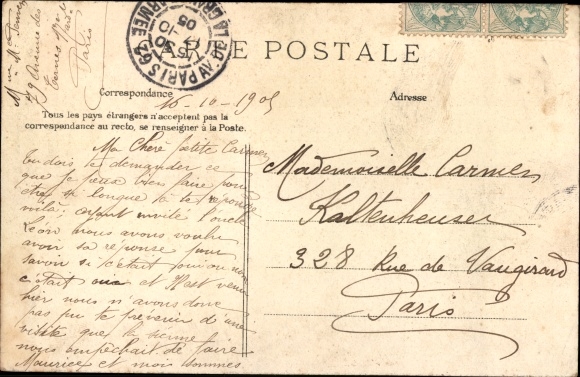 CARTE POSTALE
PARIS 62
AV. DE LA GRANDE ARMÉE
16-10
05
79 Avenue des
Ternes
Paris
Correspondance
16-10-1905
Adresse
Tous les pays étrangers n'acceptent pas la
correspondance au recto, se renseigner à la Poste.
Ma Chère petite Carmen
tu dois te demander ce
que je peux bien faire pour
être si longue à te répondre
voilà; ayant invité l'oncle
Léon nous avons voulu
avoir sa réponse pour
savoir si c'était oui ou non
c'était oui et il est venu
hier nous n'avons donc
pas pu te prévenir d'une
visite que la
nous empêchait de faire
Maurice et moi sommes
Mademoiselle Carmen
Kaltenheuser
328 Rue de Vaugirard
Paris